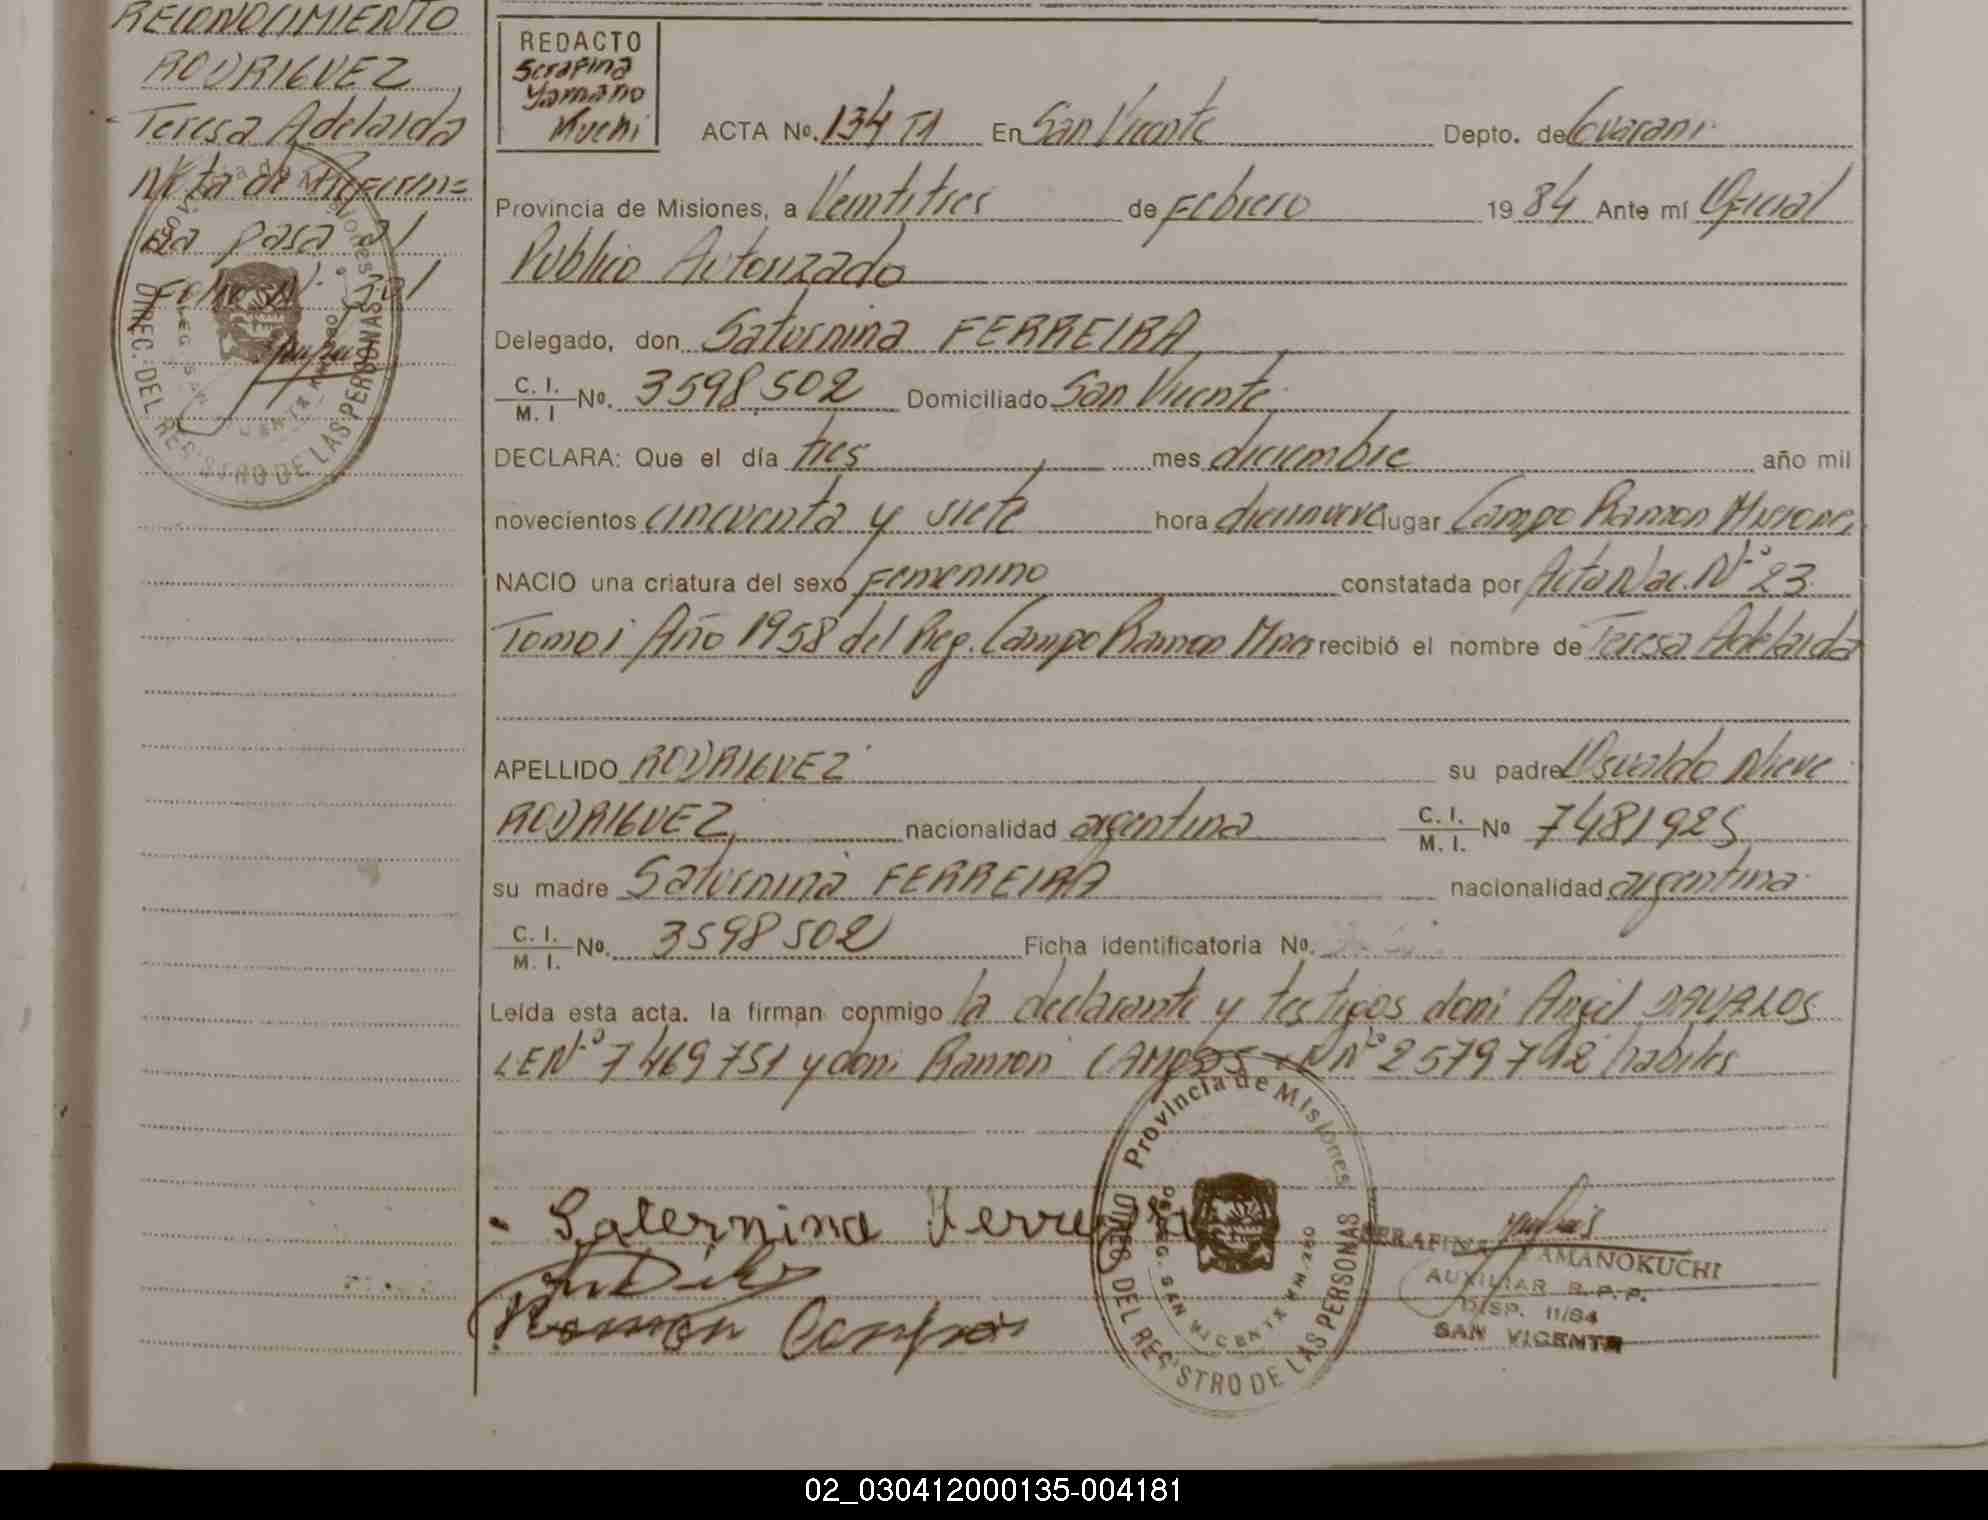 RECONOCIMIENTO
RODRIGUEZ
Teresa Adelaida
Nota de Referen=
cia pasa al
REDACTO
Serafina
Yamano
Kuchi
ACTA No. 134 T1 En San Vicente Depto. de Guarani
Provincia de Misiones, a Veintitres de Febrero 1984 Ante mí Oficial
Publico Autorizado
Delegado, don Saturnina FERREIRA
C. I.
M. I No. 3598502 Domiciliado San Vicente
DECLARA: Que el día tres mes diciembre año mil
novecientos cincuenta y siete hora diecinueve lugar Campo Ramon Misiones
NACIO una criatura del sexo Femenino constatada por Acta Nac. Nº 23
Tomo I Año 1958 del Reg. Campo Ramon Mnes recibió el nombre de Teresa Adelaida
APELLIDO RODRIGUEZ su padre Osvaldo Nieve
RODRIGUEZ nacionalidad argentina C. I.
M. I. Nº 7481925
su madre Saturnina FERREIRA nacionalidad argentina
C. I.
M. I. No. 3598502 Ficha identificatoria No.
Leída esta acta. la firman conmigo la declarante y testigos don: Angel DAVALOS
LE Nº 7469751 y don: Ramon CAMPOS Nº 2579742 habiles
Provincia de Misiones
DIREC. DEL REGISTRO DE LAS PERSONAS
REG. SAN VICENTE
Saternina Ferreira
Ramon Campos
SERAFINA YAMANOKUCHI
AUXILIAR R.P.P.
DISP. 11/84
SAN VICENTE
DIREC. DEL REGISTRO DE LAS PERSONAS
02_030412000135-004181